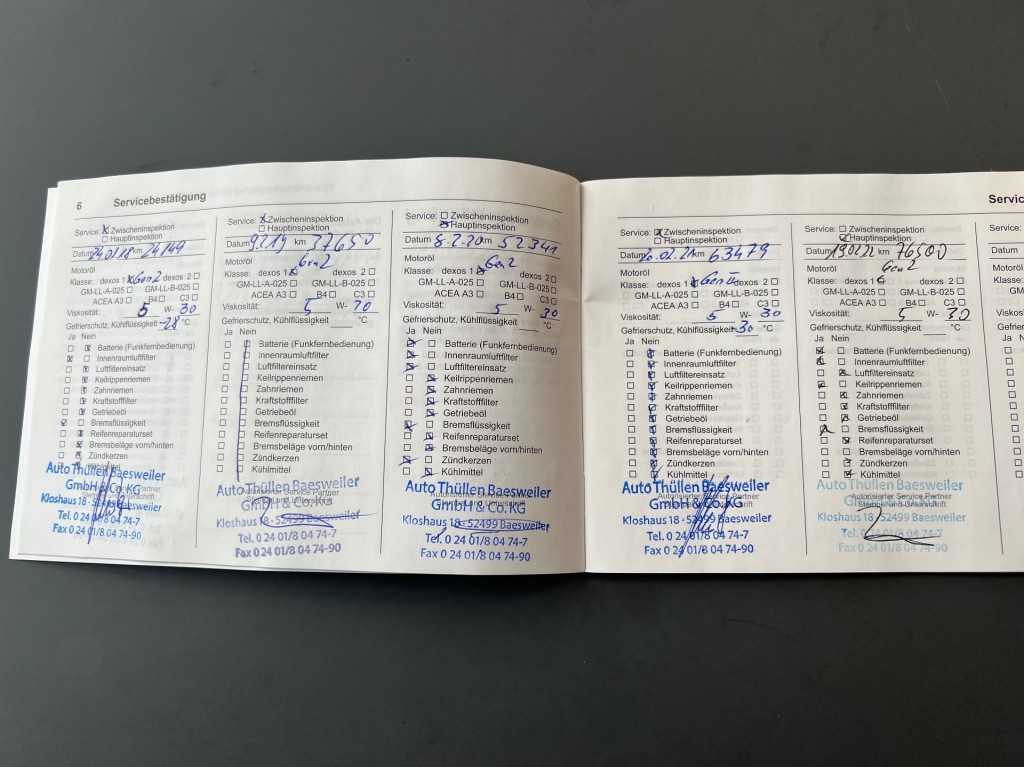 6 Servicebestätigung
Service: ☒ Zwischeninspektion
☐ Hauptinspektion
Datum 24.01.18 km 24149
Motoröl
Klasse: dexos 1 ☒ Gen2 dexos 2 ☐
GM-LL-A-025 ☐ GM-LL-B-025 ☐
ACEA A3 ☐ B4 ☐ C3 ☐
Viskosität: 5 W- 30
Gefrierschutz, Kühlflüssigkeit -28 °C
Ja Nein
☐ ☒ Batterie (Funkfernbedienung)
☒ ☐ Innenraumluftfilter
☐ ☒ Luftfiltereinsatz
☐ ☒ Keilrippenriemen
☐ ☒ Zahnriemen
☐ ☒ Kraftstofffilter
☐ ☒ Getriebeöl
☒ ☐ Bremsflüssigkeit
☐ ☒ Reifenreparaturset
☐ ☒ Bremsbeläge vorn/hinten
☐ ☒ Zündkerzen
Kühlmittel
Auto Thüllen Baesweiler
GmbH & Co. KG
Kloshaus 18 · 52499 Baesweiler
Tel. 0 24 01/8 04 74-7
Fax 0 24 01/8 04 74-90
Service: ☒ Zwischeninspektion
☐ Hauptinspektion
Datum 9.2.19 km 37650
Gen2
Motoröl
Klasse: dexos 1 ☒ dexos 2 ☐
GM-LL-A-025 ☐ GM-LL-B-025 ☐
ACEA A3 ☐ B4 ☐ C3 ☐
Viskosität: 5 W- 30
Gefrierschutz, Kühlflüssigkeit °C
Ja Nein
☐ ☐ Batterie (Funkfernbedienung)
☐ ☐ Innenraumluftfilter
☐ ☐ Luftfiltereinsatz
☐ ☐ Keilrippenriemen
☐ ☐ Zahnriemen
☐ ☐ Kraftstofffilter
☐ ☐ Getriebeöl
☐ ☐ Bremsflüssigkeit
☐ ☐ Reifenreparaturset
☐ ☐ Bremsbeläge vorn/hinten
☐ ☐ Zündkerzen
☐ ☐ Kühlmittel
Autorisierter Service Partner
Stempel und Unterschrift
Auto Thüllen Baesweiler
GmbH & Co. KG
Kloshaus 18 · 52499 Baesweiler
Tel. 0 24 01/8 04 74-7
Fax 0 24 01/8 04 74-90
Service: ☐ Zwischeninspektion
☒ Hauptinspektion
Datum 8.2.20 km 52341
Motoröl Gen2
Klasse: dexos 1 ☒ dexos 2 ☐
GM-LL-A-025 ☐ GM-LL-B-025 ☐
ACEA A3 ☐ B4 ☐ C3 ☐
Viskosität: 5 W- 30
Gefrierschutz, Kühlflüssigkeit °C
Ja Nein
☒ ☐ Batterie (Funkfernbedienung)
☒ ☐ Innenraumluftfilter
☒ ☐ Luftfiltereinsatz
☐ ☒ Keilrippenriemen
☐ ☒ Zahnriemen
☐ ☒ Kraftstofffilter
☐ ☒ Getriebeöl
☒ ☐ Bremsflüssigkeit
☐ ☒ Reifenreparaturset
☐ ☒ Bremsbeläge vorn/hinten
☒ ☐ Zündkerzen
☐ ☒ Kühlmittel
Auto Thüllen Baesweiler
GmbH & Co. KG
Kloshaus 18 · 52499 Baesweiler
Tel. 0 24 01/8 04 74-7
Fax 0 24 01/8 04 74-90
Servic
Service: ☒ Zwischeninspektion
☐ Hauptinspektion
.02.21 km 63479
Motoröl
Klasse: dexos 1 ☒ Gen II dexos 2 ☐
GM-LL-A-025 ☐ GM-LL-B-025 ☐
ACEA A3 ☐ B4 ☐ C3 ☐
Viskosität: 5 W- 30
Gefrierschutz, Kühlflüssigkeit -30 °C
Ja Nein
☐ ☒ Batterie (Funkfernbedienung)
☐ ☒ Innenraumluftfilter
☐ ☒ Luftfiltereinsatz
☐ ☒ Keilrippenriemen
☐ ☒ Zahnriemen
☐ ☒ Kraftstofffilter
☐ ☒ Getriebeöl
☐ ☒ Bremsflüssigkeit
☐ ☒ Reifenreparaturset
☐ ☒ Bremsbeläge vorn/hinten
☐ ☒ Zündkerzen
☐ ☒ Kühlmittel
Auto Thüllen Baesweiler
GmbH & Co. KG
Kloshaus 18 · 52499 Baesweiler
Tel. 0 24 01/8 04 74-7
Fax 0 24 01/8 04 74-90
Service: ☐ Zwischeninspektion
☒ Hauptinspektion
Datum 19.02.22 km 76500
Motoröl Gen2
Klasse: dexos 1 ☒ dexos 2 ☐
GM-LL-A-025 ☐ GM-LL-B-025 ☐
ACEA A3 ☐ B4 ☐ C3 ☐
Viskosität: 5 W- 30
Gefrierschutz, Kühlflüssigkeit °C
Ja Nein
☒ ☐ Batterie (Funkfernbedienung)
☒ ☐ Innenraumluftfilter
☐ ☒ Luftfiltereinsatz
☒ ☐ Keilrippenriemen
☐ ☒ Zahnriemen
☐ ☒ Kraftstofffilter
☐ ☒ Getriebeöl
☒ ☐ Bremsflüssigkeit
☐ ☒ Reifenreparaturset
☐ ☒ Bremsbeläge vorn/hinten
☐ ☒ Zündkerzen
☐ ☒ Kühlmittel
Autorisierter Service Partner
Stempel und Unterschrift
Auto Thüllen Baesweiler
GmbH & Co. KG
Kloshaus 18 · 52499 Baesweiler
Tel. 0 24 01/8 04 74-7
Fax 0 24 01/8 04 74-90
Service:
Datum
Motoröl
Klasse:
GM-LL
Viskosität
Gefriersch
Ja N